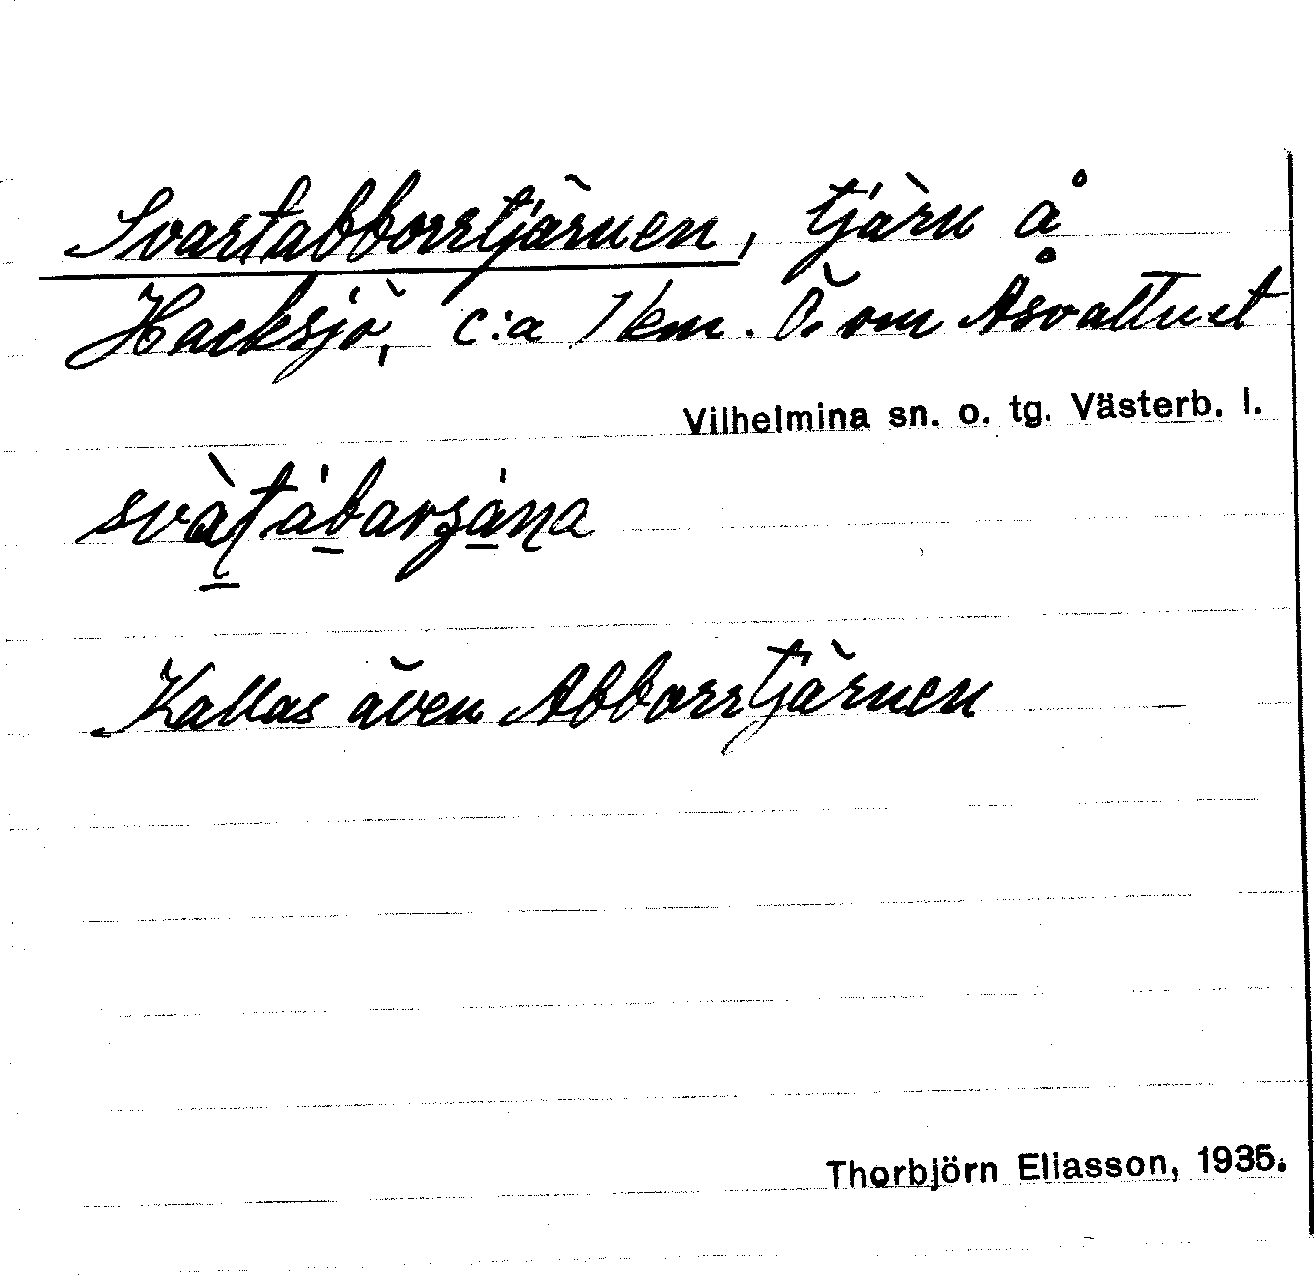 Svartabborrtjärnen, tjärn å
Hacksjö, c:a 1 km. Ö. om Åsvattnet
Vilhelmina sn. o. tg. Västerb. l.
Kallas även Abborrtjärnen
Thorbjörn Eliasson, 1935.